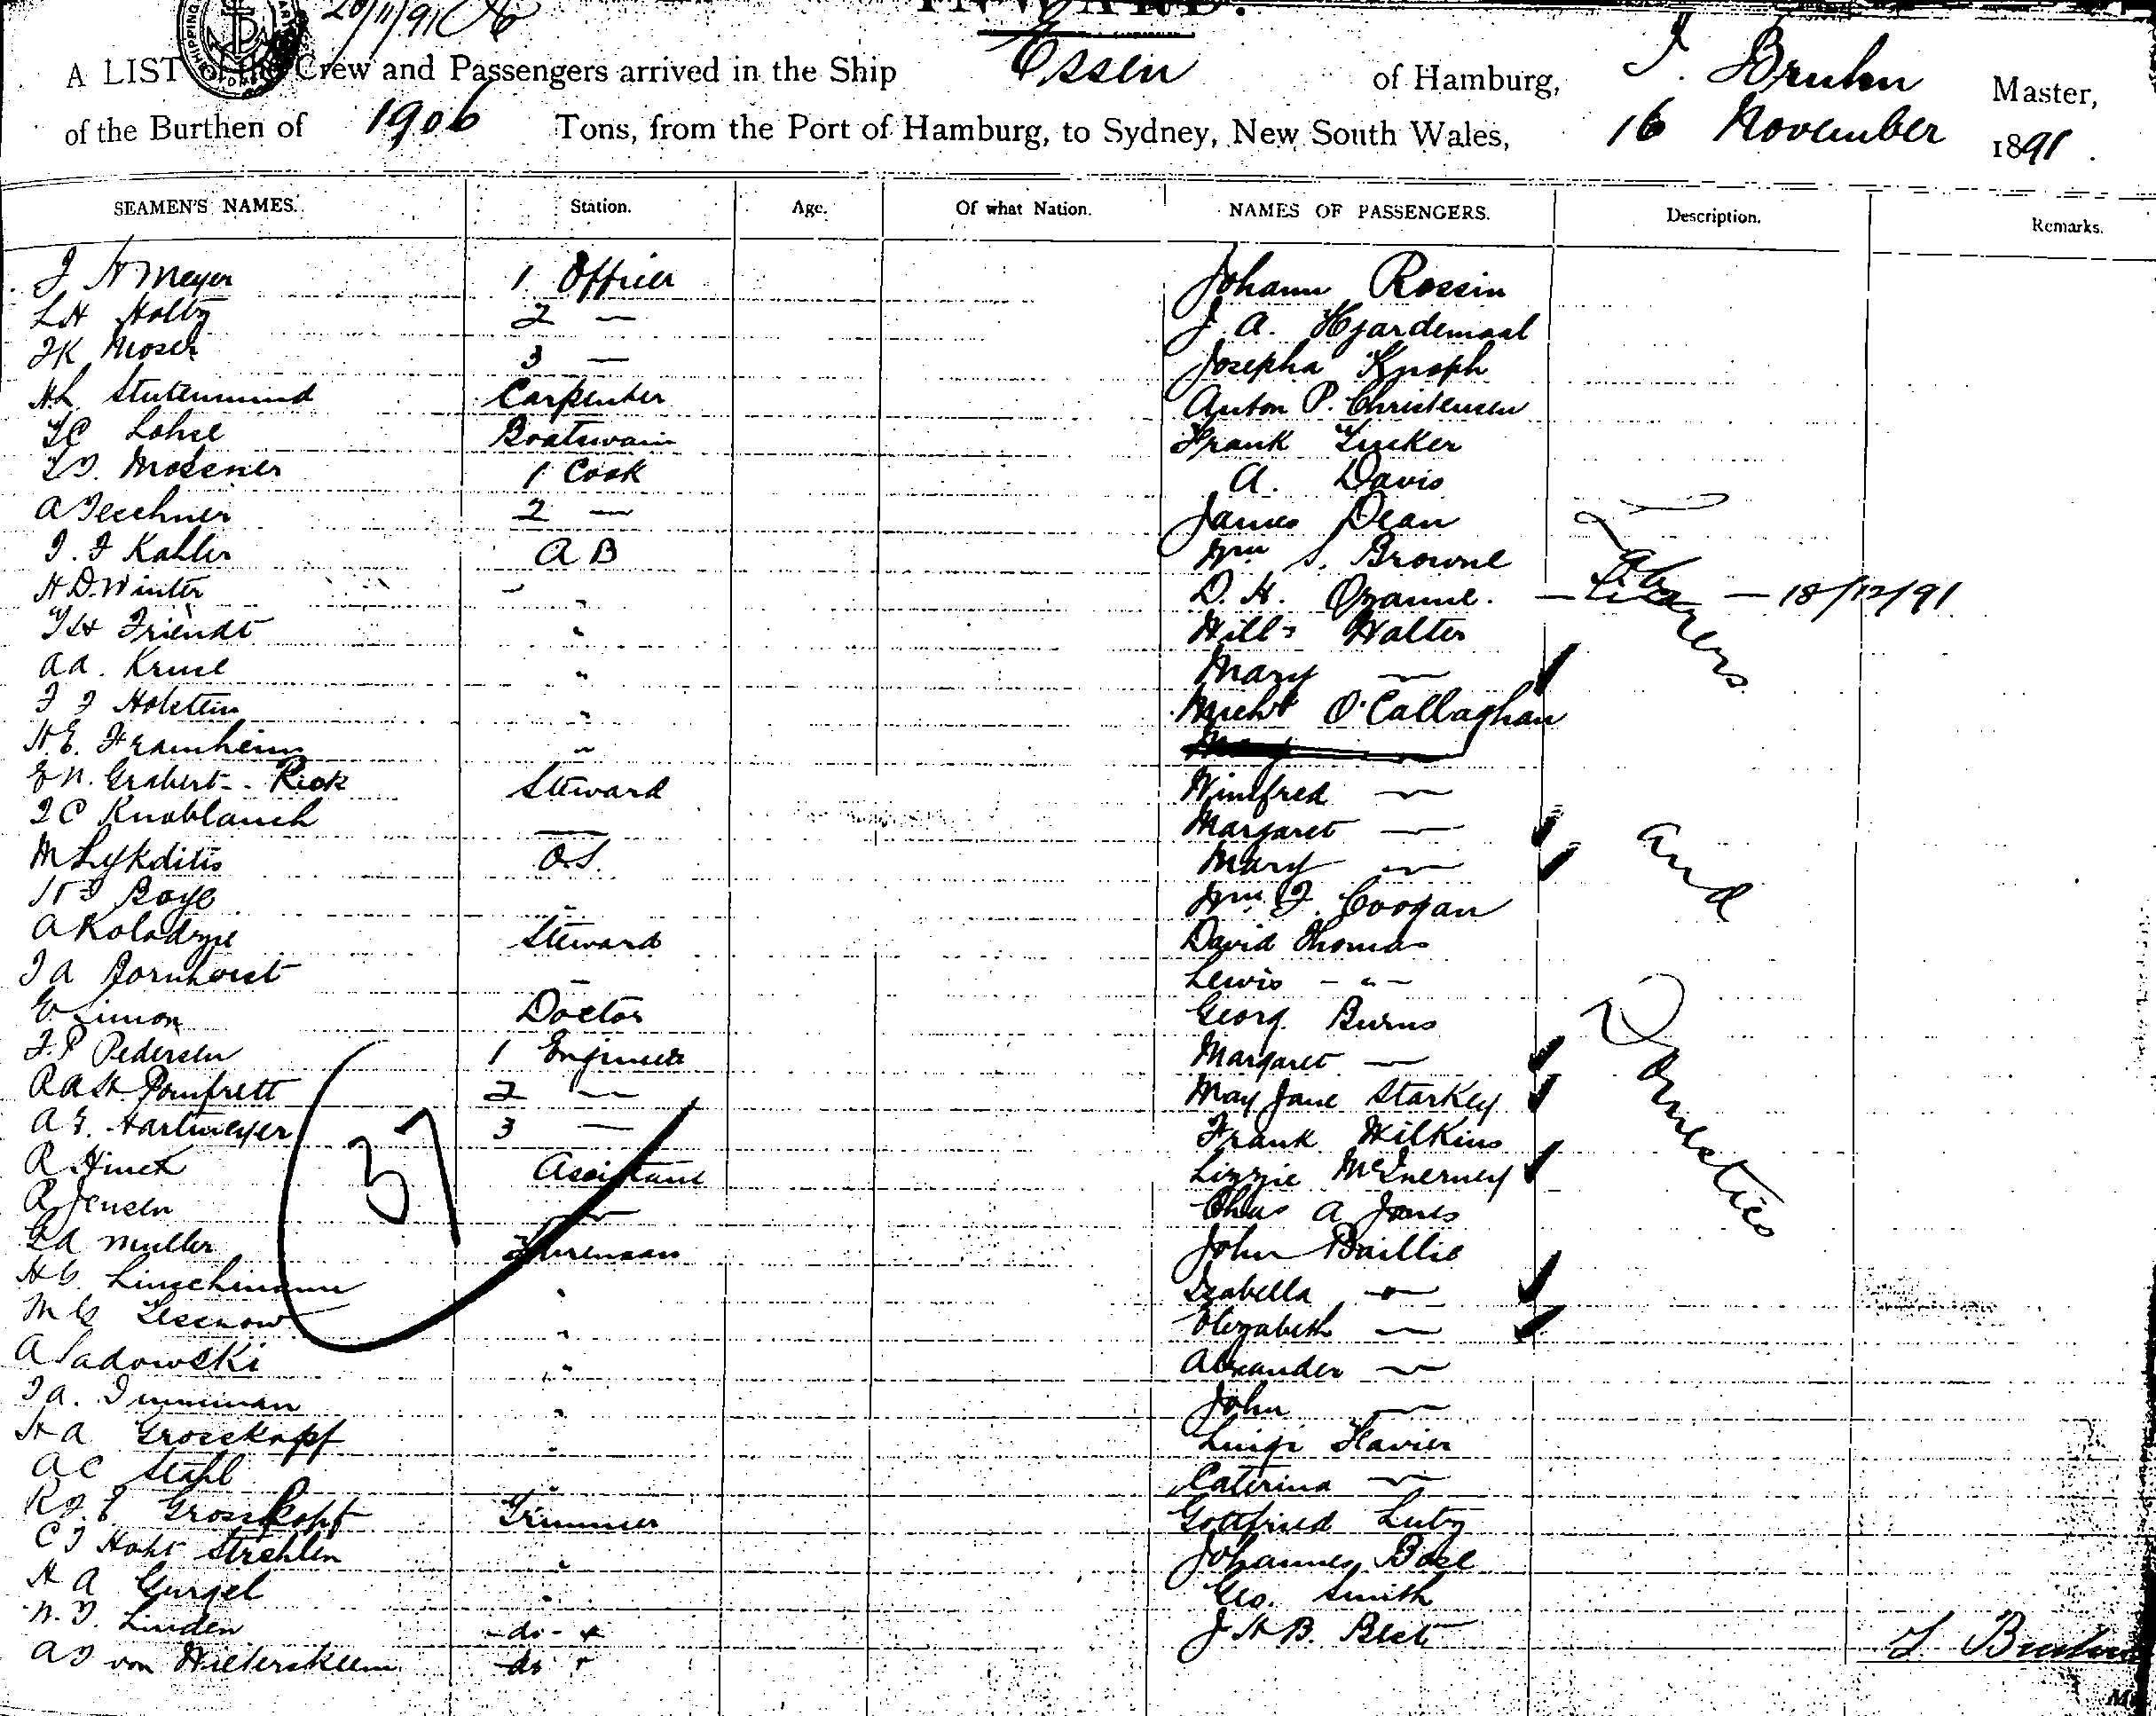 20/11/91
INWARD.
A LIST of the Crew and Passengers arrived in the Ship Essen of Hamburg, J. Bruhn Master,
of the Burthen of 1906 Tons, from the Port of Hamburg, to Sydney, New South Wales, 16 November 1891.
SEAMEN'S NAMES. Station. Age. Of what Nation. NAMES OF PASSENGERS. Description. Remarks.
J H Meyer 1 Officer Johann Rossin
L H Holtz 2 — J. A. Hjardemaal
J K Moser 3 — Josepha Knoph
H L Stutenmund Carpenter Anton P. Christensen
Lohse Boatswain Frank Tucker
Mossner 1 Cook A. Davis
A Teschner 2 — James Dean
J. F Kahler A B Wm S. Browne
H D. Winter " D. H. Ozanne. — — 18/12/91
Friendt " Walter
A A. Kruse " Mary —
Holstein " Michl O'Callaghan
H. E. Framheim "
E N. Grabert - Rick Steward Winifred —
J C Knoblauch — Margaret —
M Lykditis O.S. Mary —
Boye " Wm J. Coogan
A Kolodzye Steward David Thomas
J A Bornhorst — Lewis - " -
E Simon Doctor Georg Burns
J. P Pedersen 1 Engineer Margaret —
R A H Pomfrett 2 — May Jane Starkey
A E. Hartmeyer 3 — Frank Wilkins
R Hinck Assistant Lizzie McInerney
R Jensen — Chas A Jones
Muller Fireman John Baillie
Linschmann " Isabella —
M G " Elizabeth —
A Sadowski " Alexander —
J A. Timmerman " John —
H A Grosskopf " Luigi Flavier
A C Stahl " Caterina —
R J. E Grosskopf Trimmer Gottfried Lutz
Strehlen " Johannes Bose
H A Gurgel " Geo. Smith
Linden - do - J H B. Best
von do J. Bruhn
Laborers
and
Domestics
37